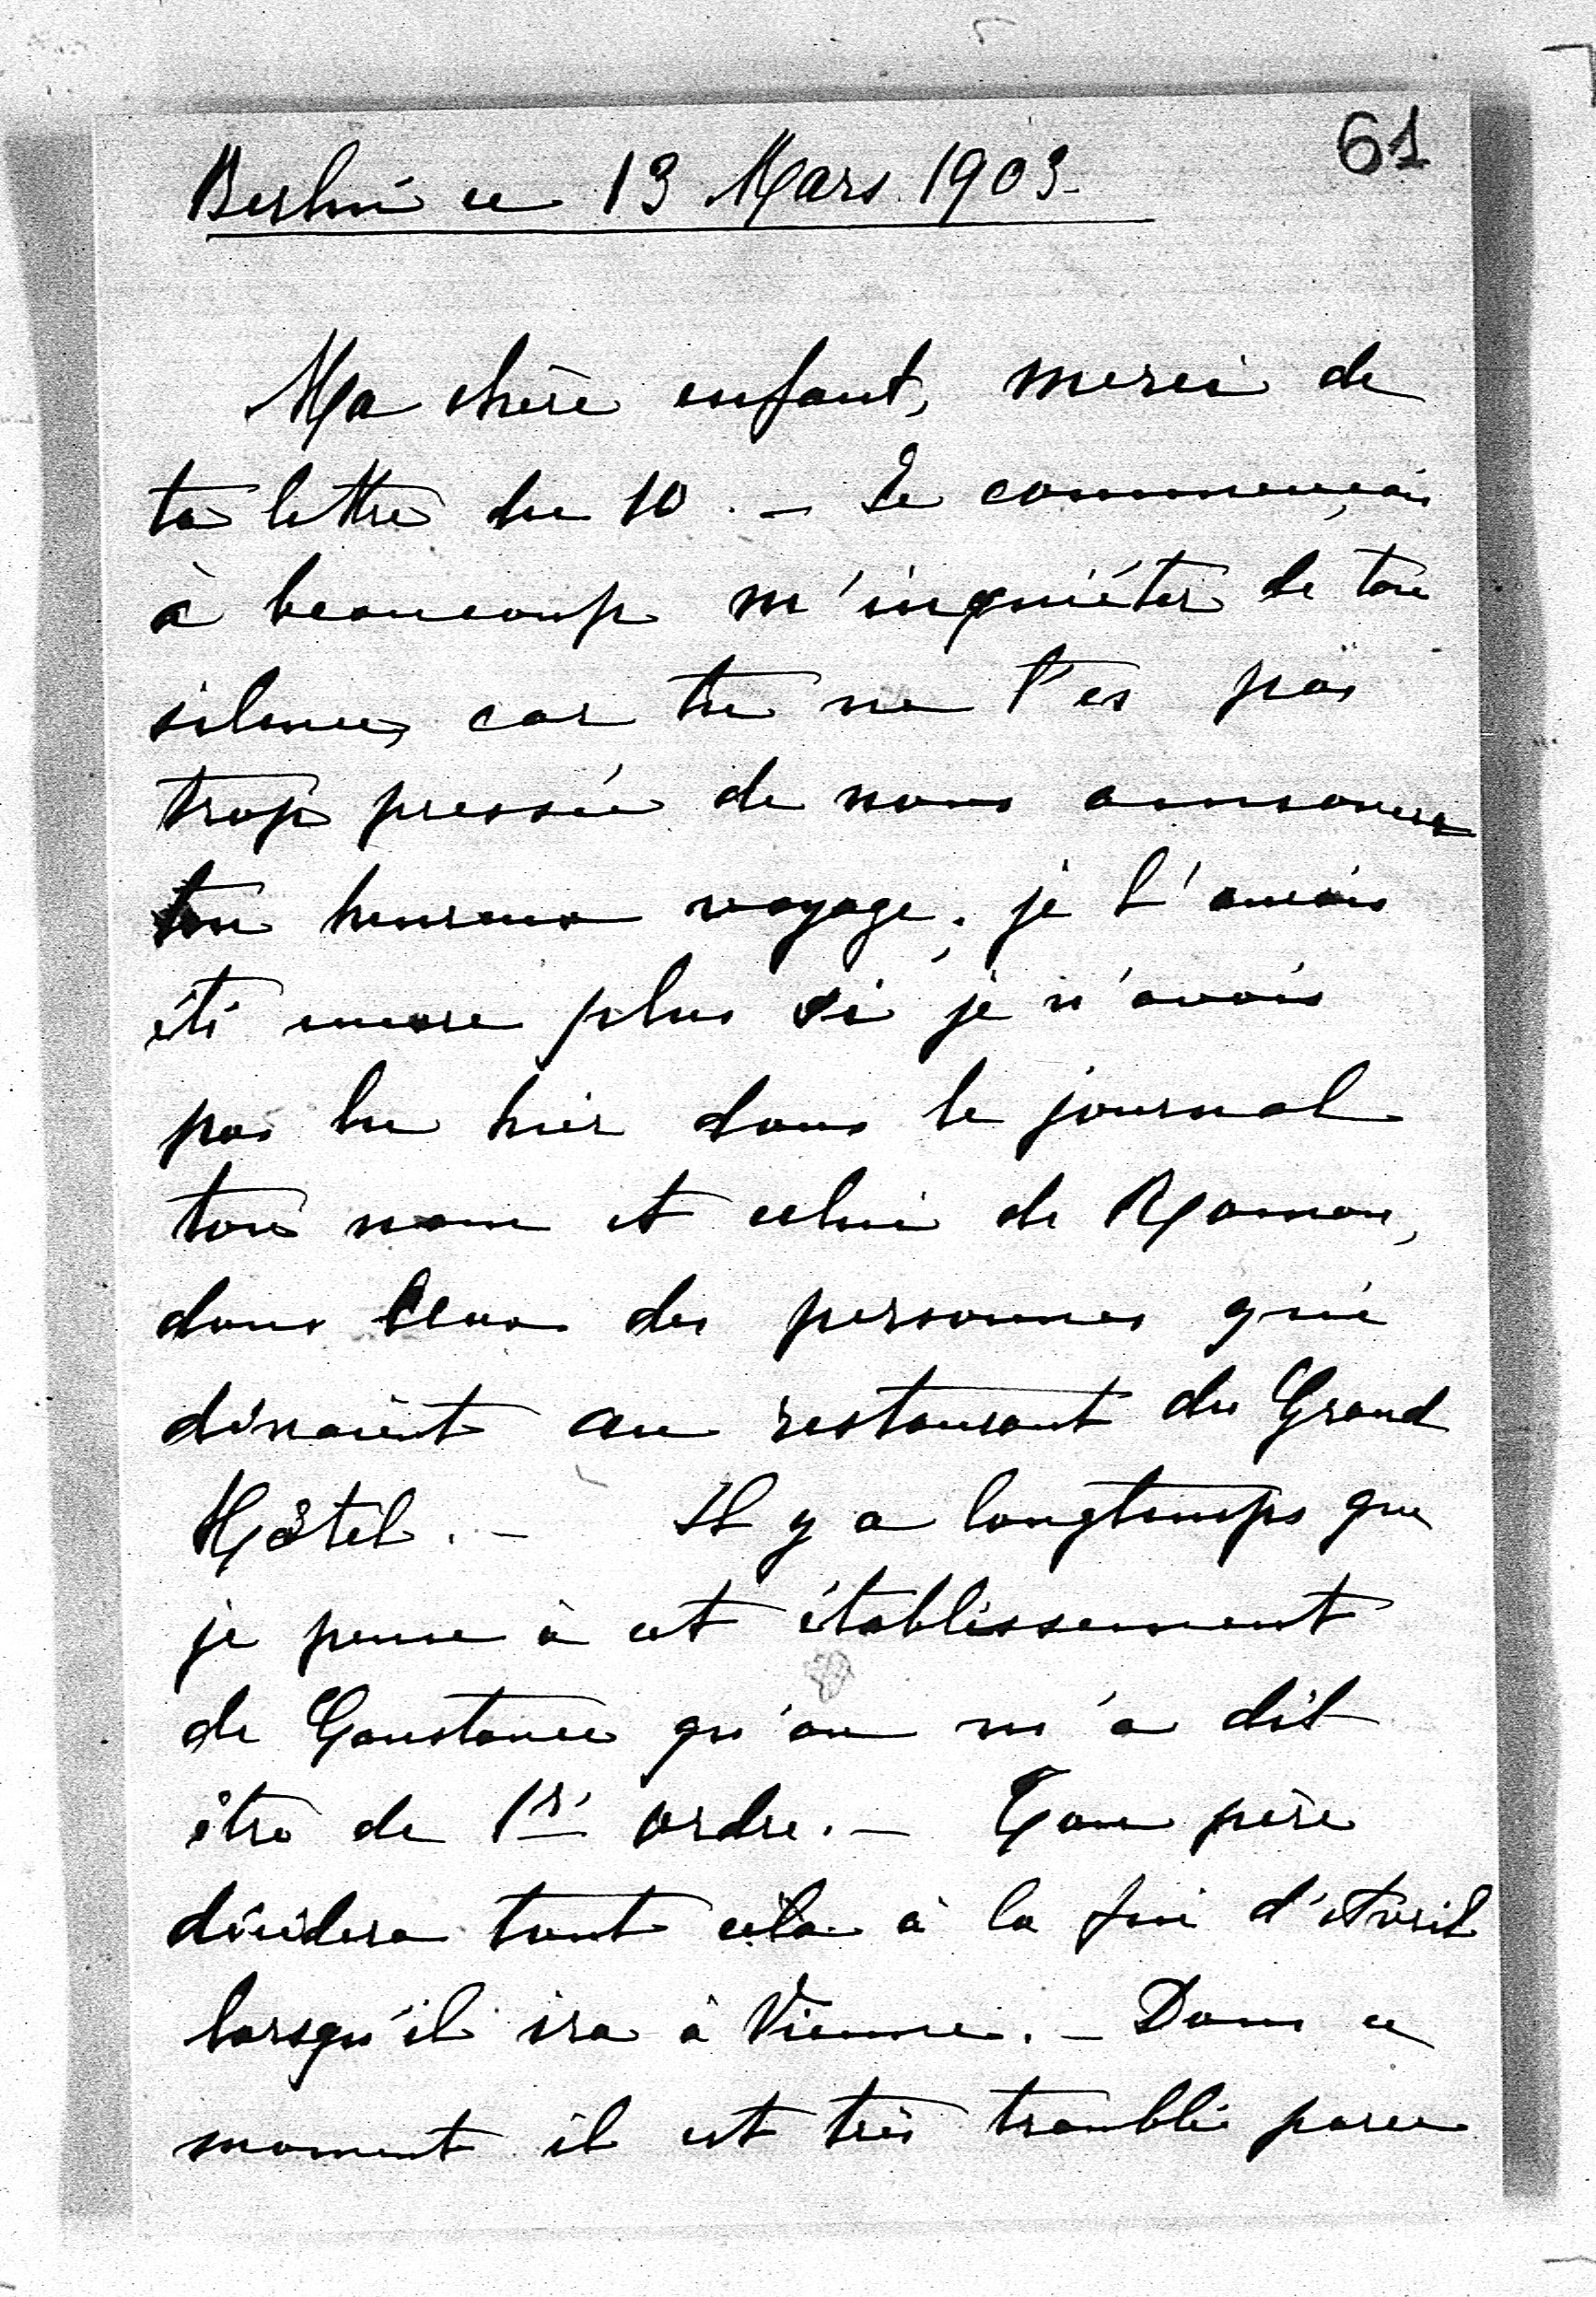 61
Berlin ce 13 Mars 1903
Ma chère enfant, merci de
ta lettre du 10. - Je commençais
à beaucoup m'inquiéter de ton
silence, car tu ne t'es pas
trop pressée de nous annoncer
ton heureux voyage; je l'aurais
été encore plus si je n'avais
pas lu hier dans le journal
ton nom et celui de Maman,
dans ceux des personnes qui
dinaient au restaurant du Grand
Hôtel. - Il y a longtemps que
je pense à cet établissement
de Constance qu'on m'a dit
être de 1er ordre. - Ton père
décidera tout cela à la fin d'Avril
lorsqu'il ira à Vienne. - Dans ce
moment il est très troublé parce